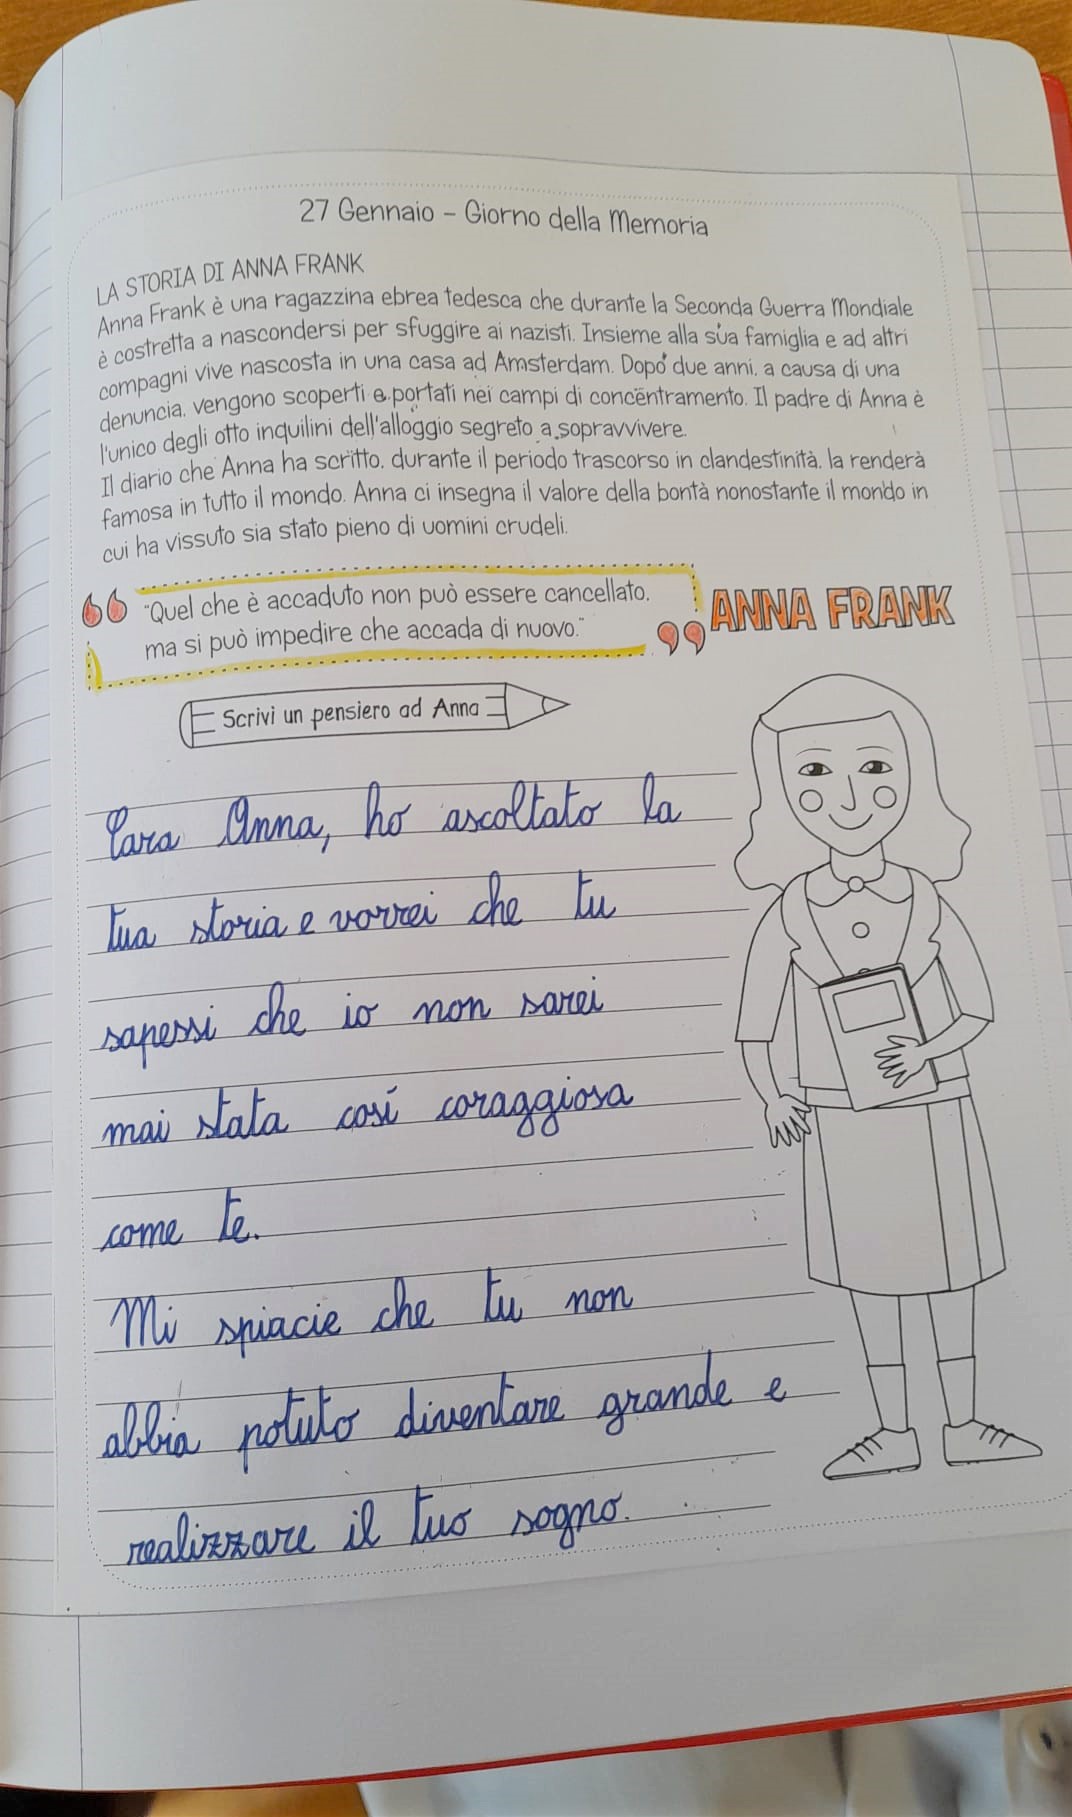 27 Gennaio - Giorno della Memoria
LA STORIA DI ANNA FRANK
Anna Frank è una ragazzina ebrea tedesca che durante la Seconda Guerra Mondiale
è costretta a nascondersi per sfuggire ai nazisti. Insieme alla sua famiglia e ad altri
compagni vive nascosta in una casa ad Amsterdam. Dopo due anni, a causa di una
denuncia, vengono scoperti e portati nei campi di concentramento. Il padre di Anna è
l'unico degli otto inquilini dell'alloggio segreto a sopravvivere.
Il diario che Anna ha scritto, durante il periodo trascorso in clandestinità, la renderà
famosa in tutto il mondo. Anna ci insegna il valore della bontà nonostante il mondo in
cui ha vissuto sia stato pieno di uomini crudeli.
"Quel che è accaduto non può essere cancellato,
ma si può impedire che accada di nuovo."
ANNA FRANK
Scrivi un pensiero ad Anna
Cara Anna, ho ascoltato la
tua storia e vorrei che tu
sapessi che io non sarei
mai stata così coraggiosa
come te.
Mi spiacie che tu non
abbia potuto diventare grande e
realizzare il tuo sogno.